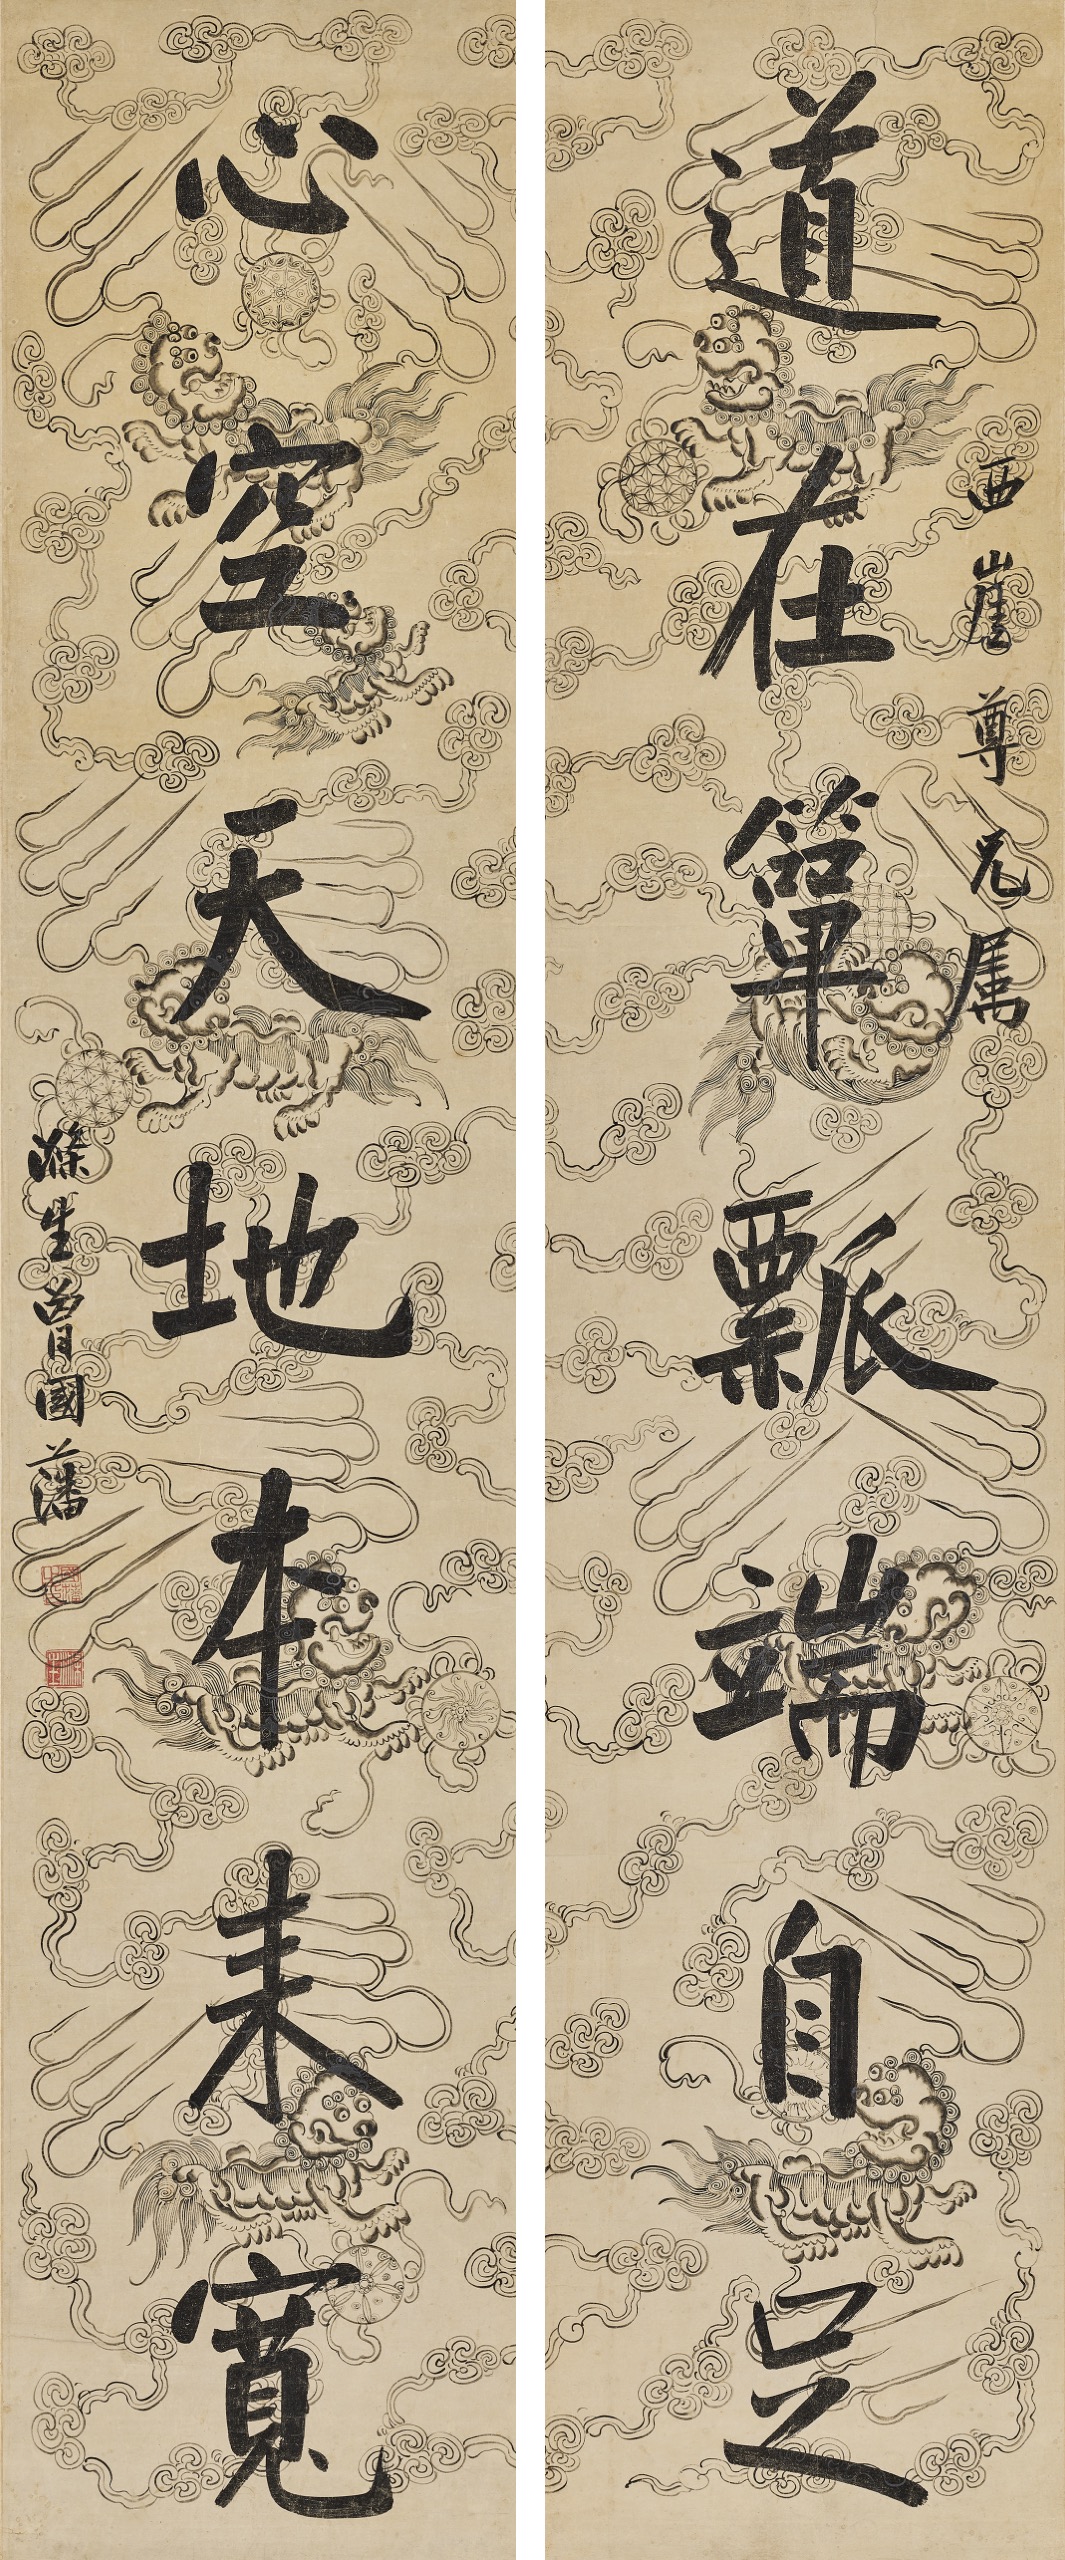 道在箪瓢端自足
西崖尊兄属
心空天地本来寬
滌生曾國藩